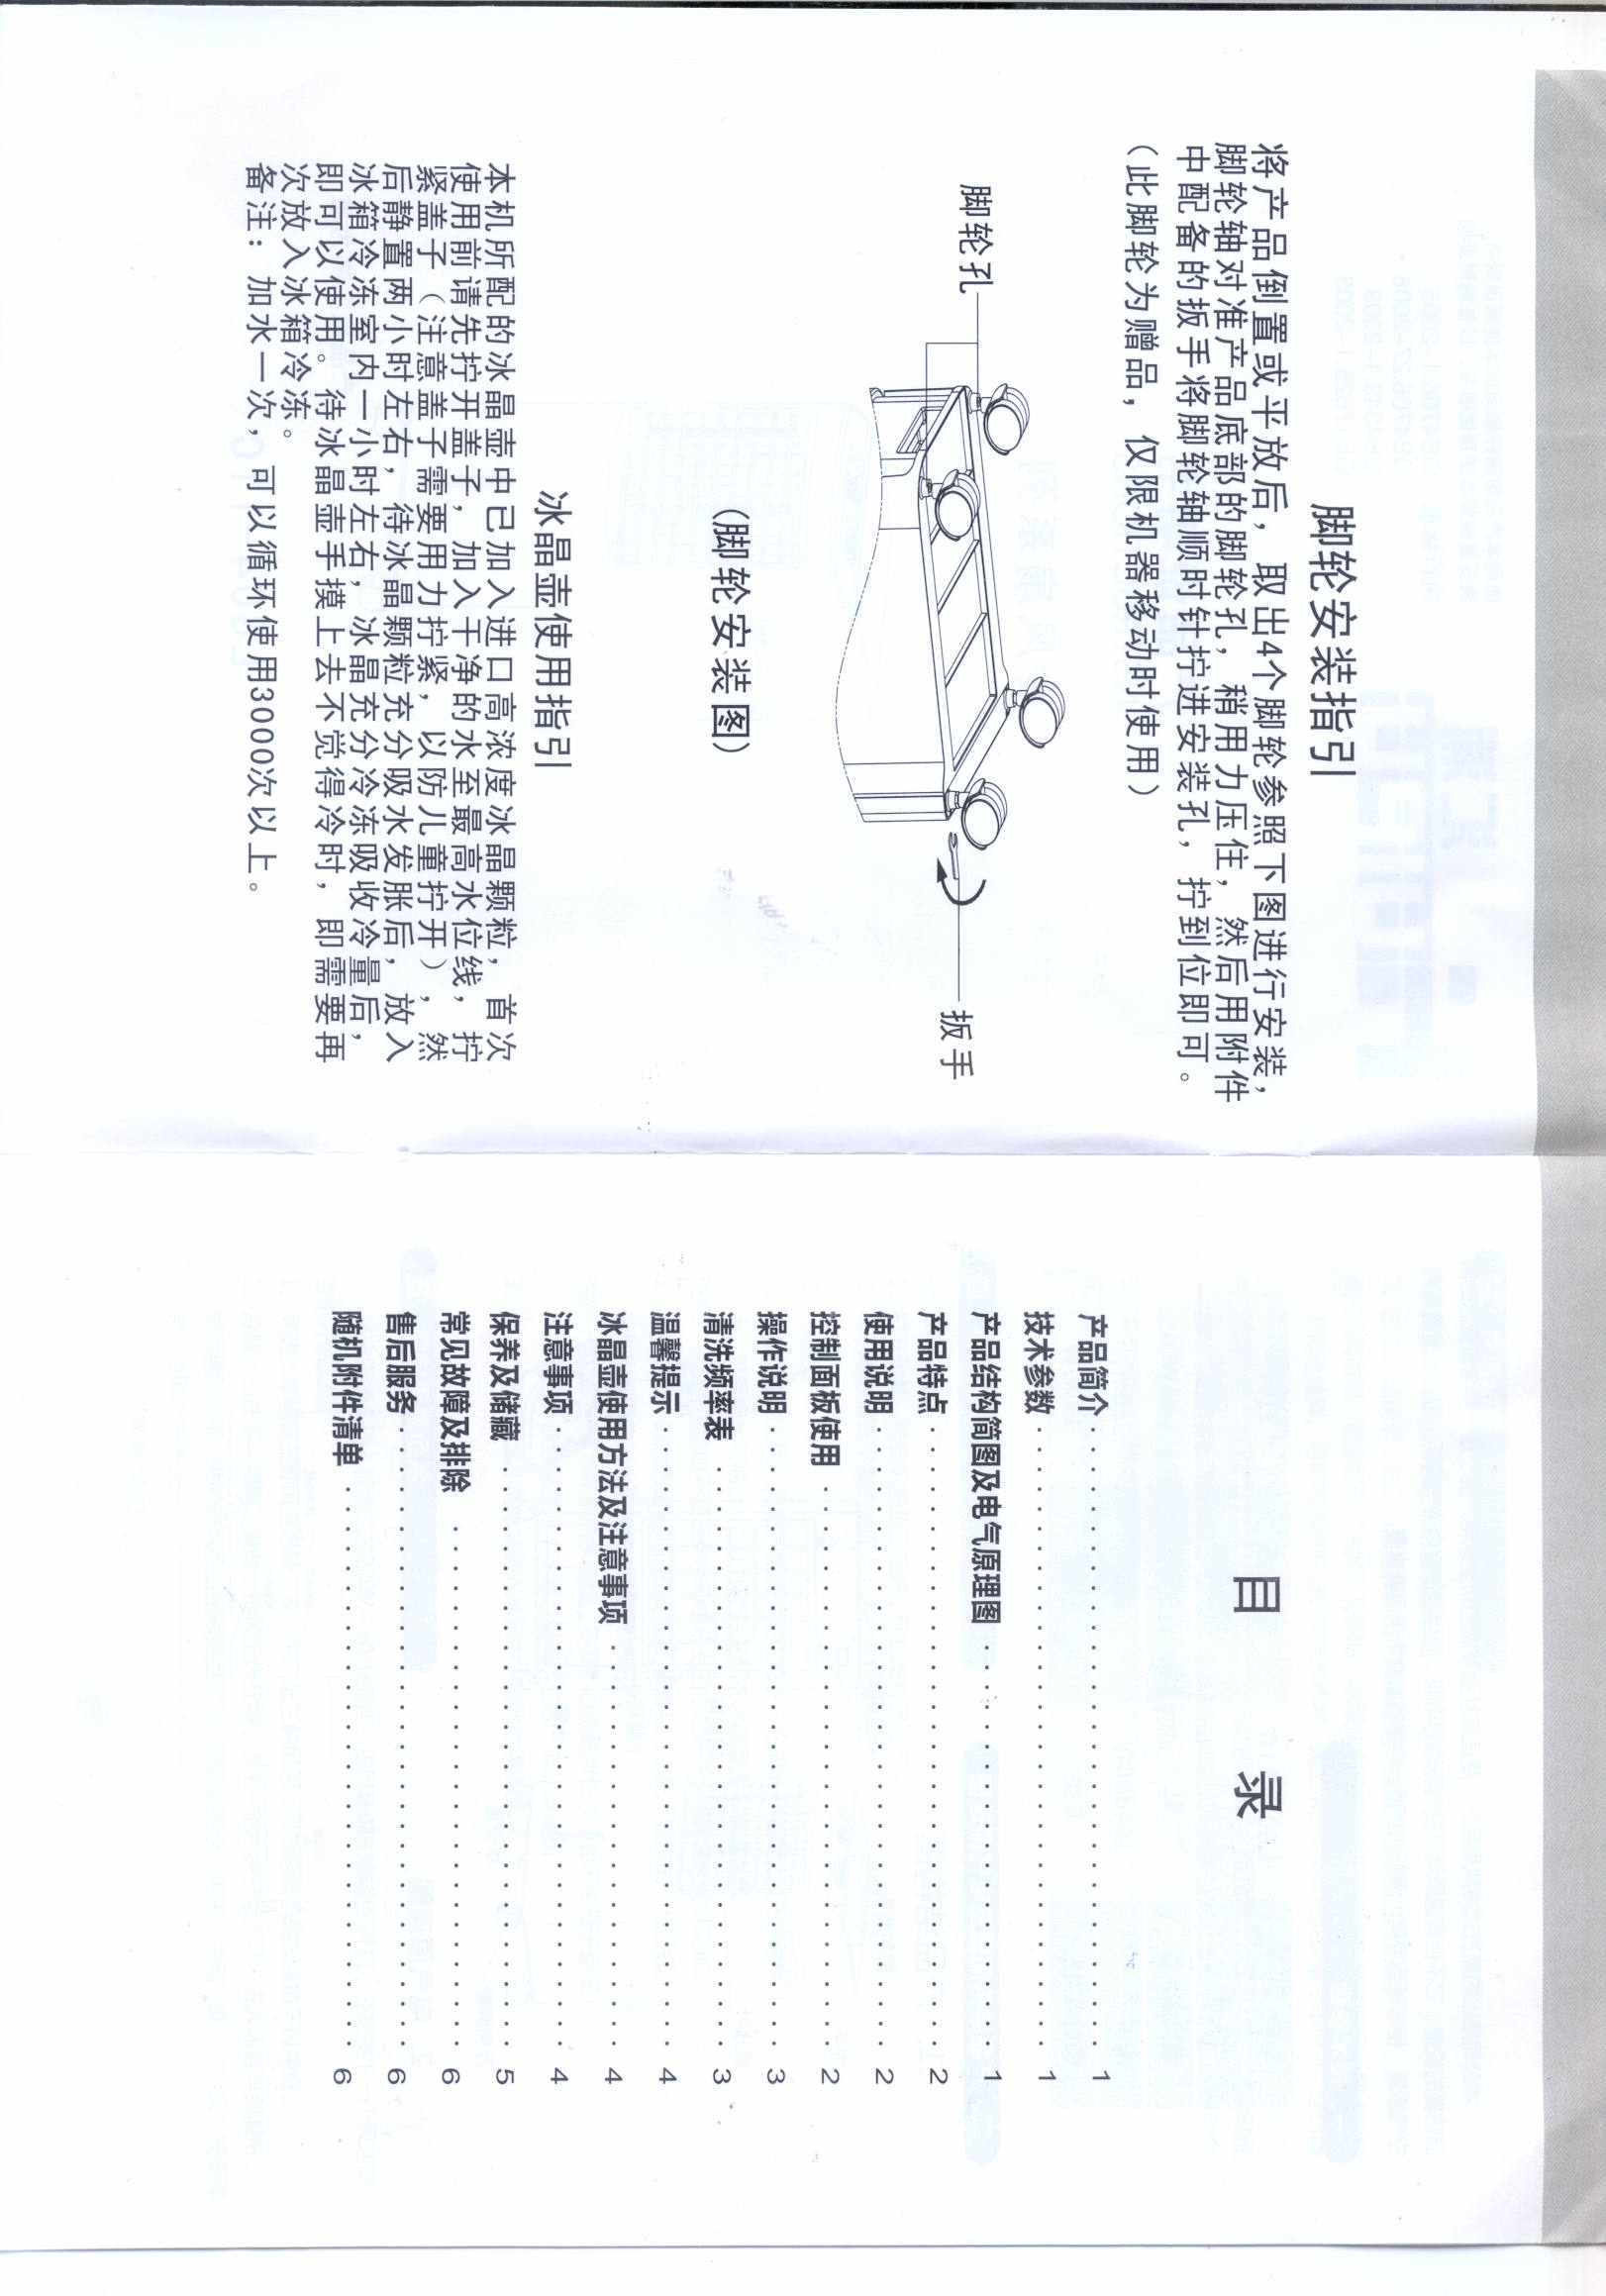 脚轮安装指引
将产品倒置或平放后，取出4个脚轮参照下图进行安装，
脚轮轴对准产品底部的脚轮孔，稍用力压住，然后用附件
中配备的扳手将脚轮轴顺时针拧进安装孔，拧到位即可。
（此脚轮为赠品，仅限机器移动时使用）
脚轮孔
扳手
（脚轮安装图）
冰晶壶使用指引
本机所配的冰晶壶中已加入进口高浓度冰晶颗粒，首次
使用前请先拧开盖子，加入干净的水至最高水位线，拧
紧盖子（注意盖子需要用力拧紧，以防儿童拧开），然
后静置两小时左右，待冰晶颗粒充分吸水发胀后，放入
冰箱冷冻室内一小时左右，冰晶充分冷冻吸收冷量后，
即可以使用。待冰晶壶手摸上去不觉得冷时，即需要再
次放入冰箱冷冻。
备注：加水一次，可以循环使用3000次以上。
目 录
产品简介 1
技术参数 1
产品结构简图及电气原理图 1
产品特点 2
使用说明 2
控制面板使用 2
操作说明 3
清洗频率表 3
温馨提示 4
冰晶壶使用方法及注意事项 4
注意事项 4
保养及储藏 5
常见故障及排除 6
售后服务 6
随机附件清单 6